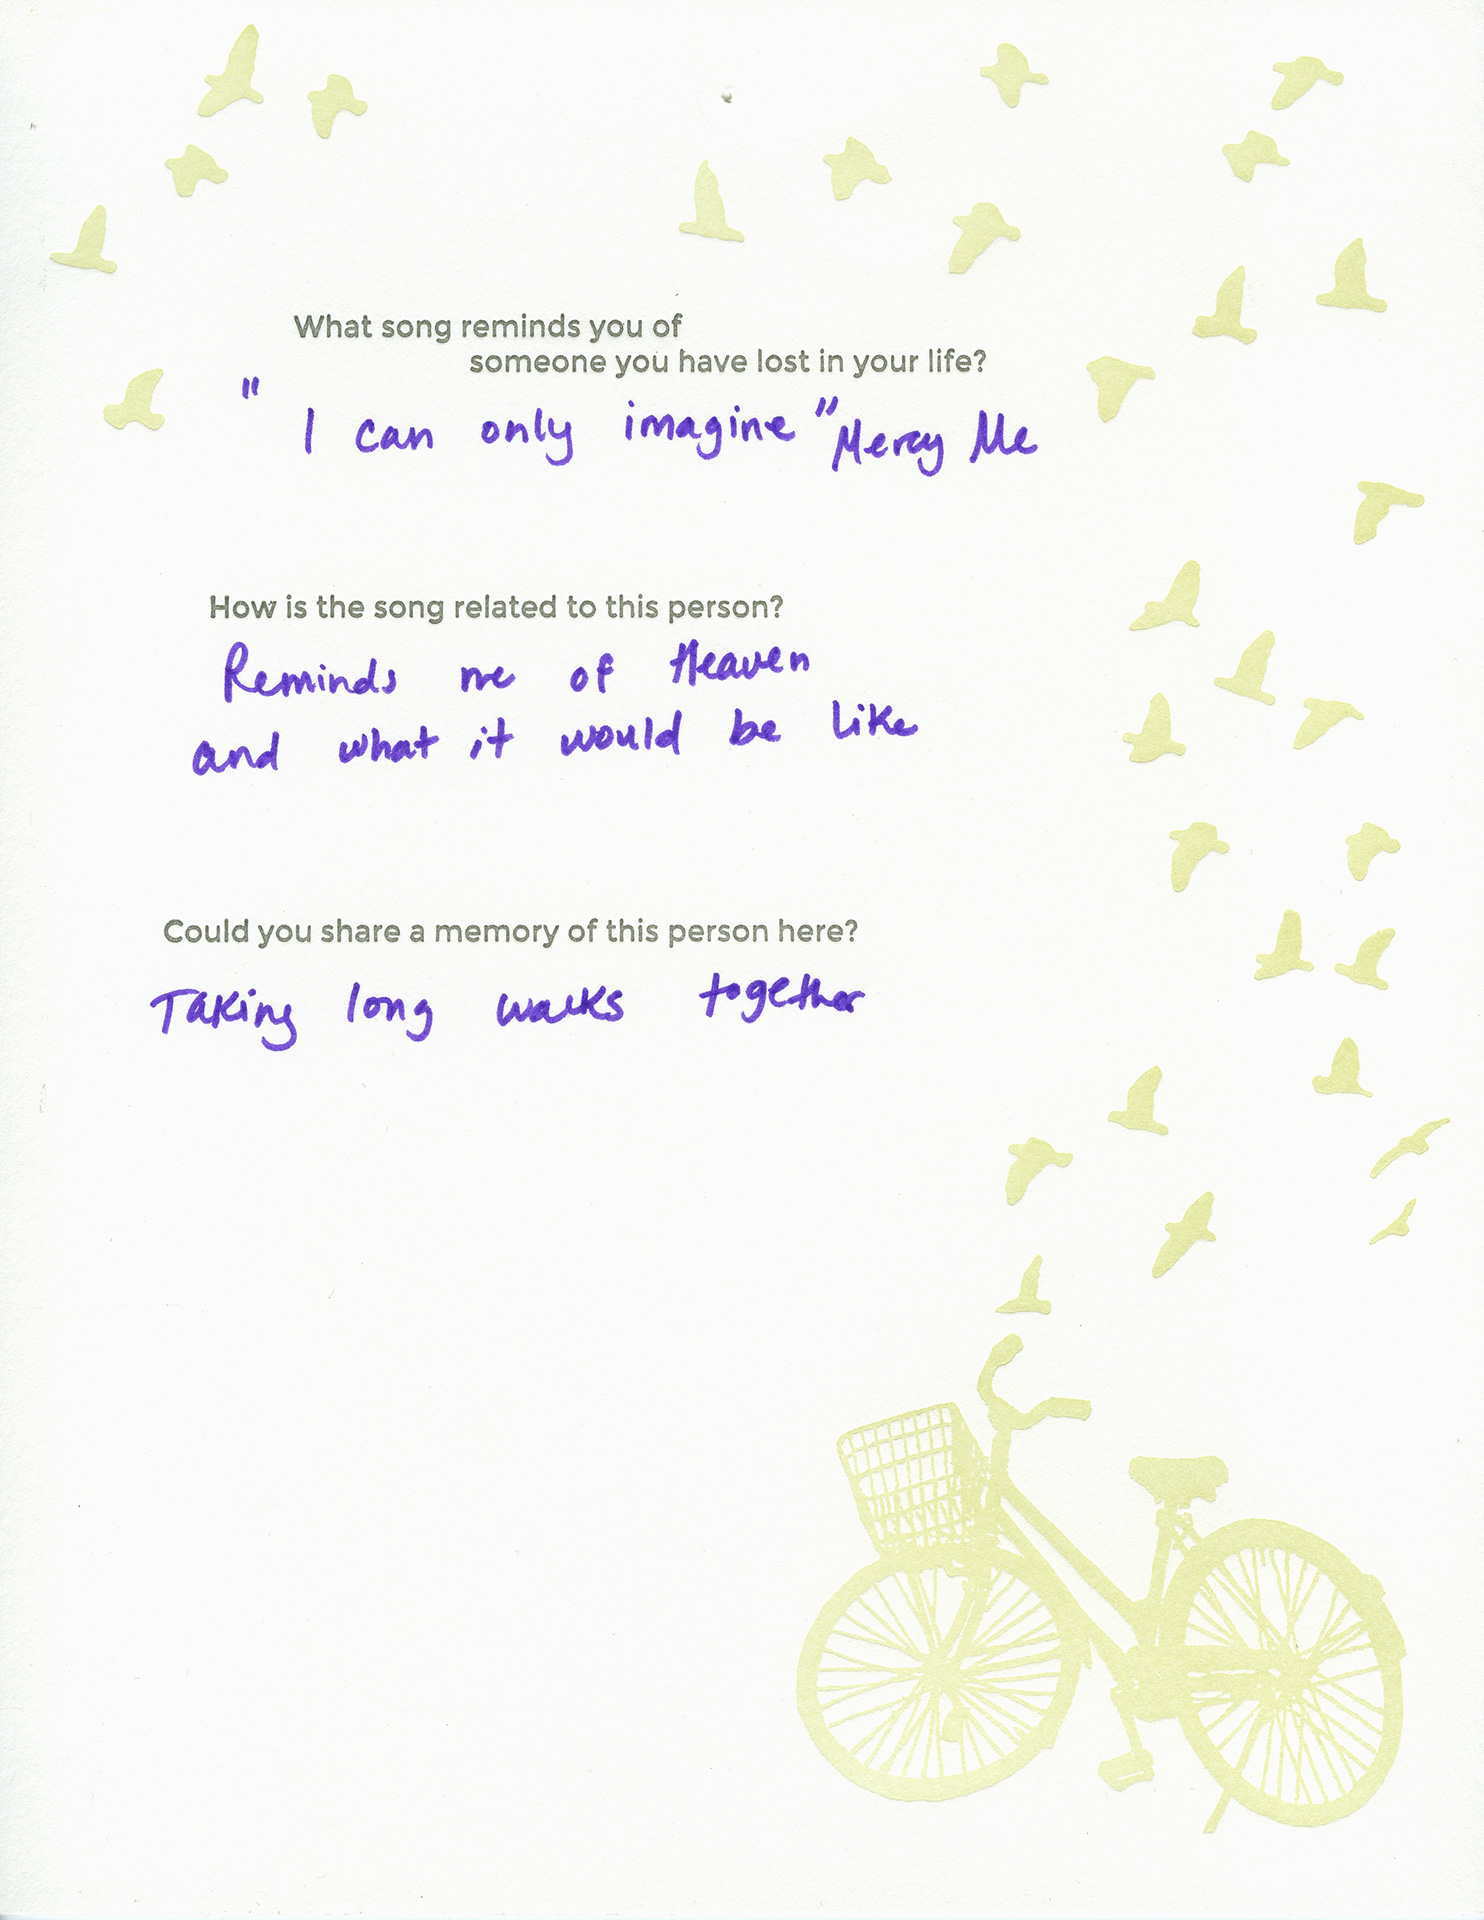 What song reminds you of
someone you have lost in your life?
" I can only imagine" Mercy Me
How is the song related to this person?
Reminds me of Heaven
and what it would be like
Could you share a memory of this person here?
Taking long walks together